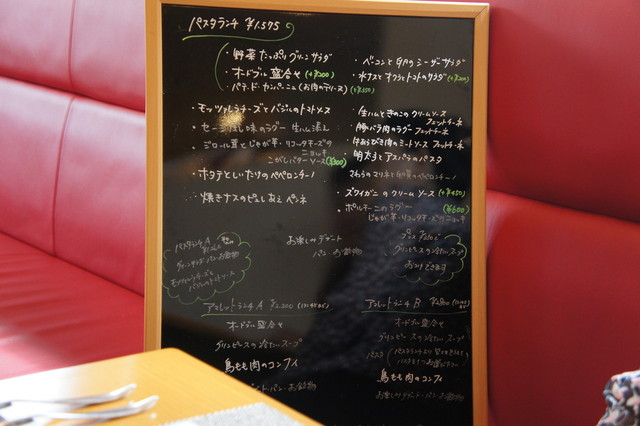 パスタランチ ¥1,575
・野菜たっぷりグリーンサラダ
・オードブル盛合せ (+¥200)
・パテ・ド・カンパーニュ(お肉のテリーヌ) (+¥350)
・ベーコンと卵のシーザーサラダ
・水タコとオクラとトマトのサラダ
・モッツァレラチーズとバジルのトマトソース
・セージ 味のラグー 生ハム添え
・ジロール茸とじゃが芋・リコッタチーズの
ニョッキ
こがしバターソース
・ホタテといたりのペペロンチーノ
・焼きナスのピュレあえ ペンネ
・生ハムときのこのクリームソース
フェットチーネ
・豚バラ肉のラグー フェットチーネ
・牛あらびき肉のミートソース フェットチーネ
・明太子とアスパラのパスタ
さわらのマリネと のペペロンチーノ
・ズワイガニのクリームソース (+¥450)
・ポルチーニのラグー (¥600)
じゃが芋・リコッタチーズのニョッキ
パスタランチA
グリーンサラダ・パン・お飲物
モッツァレラチーズと
バジルのトマトソース
お楽しみデザート
パン・お飲物
プラス で
グリンピースの冷たいスープ
おつけできます
ランチA ¥2,200
オードブル盛合せ
グリンピースの冷たいスープ
鳥もも肉のコンフィ
デザート・パン・お飲物
ランチB
オードブル盛合せ
グリンピースの冷たいスープ
パスタ
鳥もも肉のコンフィ
お楽しみデザート・パン・お飲物